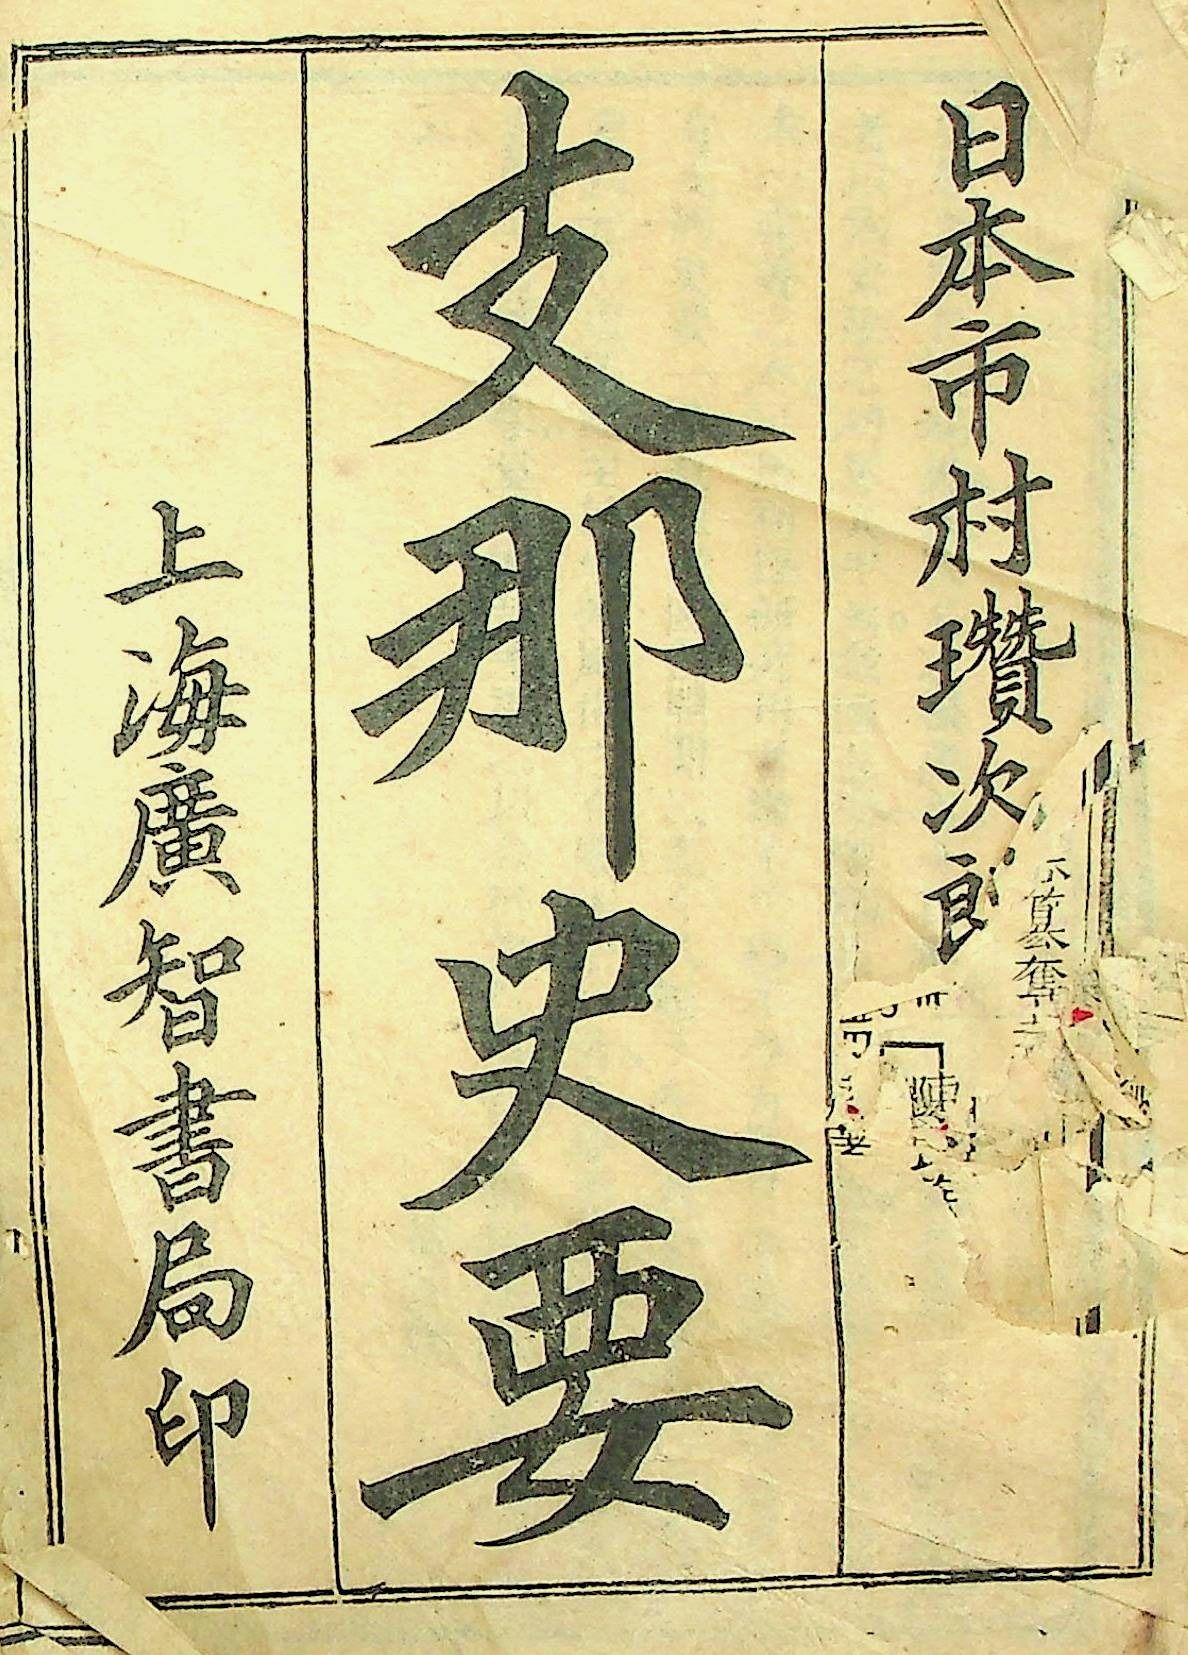 日本市村瓚次郎
支那史要
上海廣智書局印
篡奪
陳